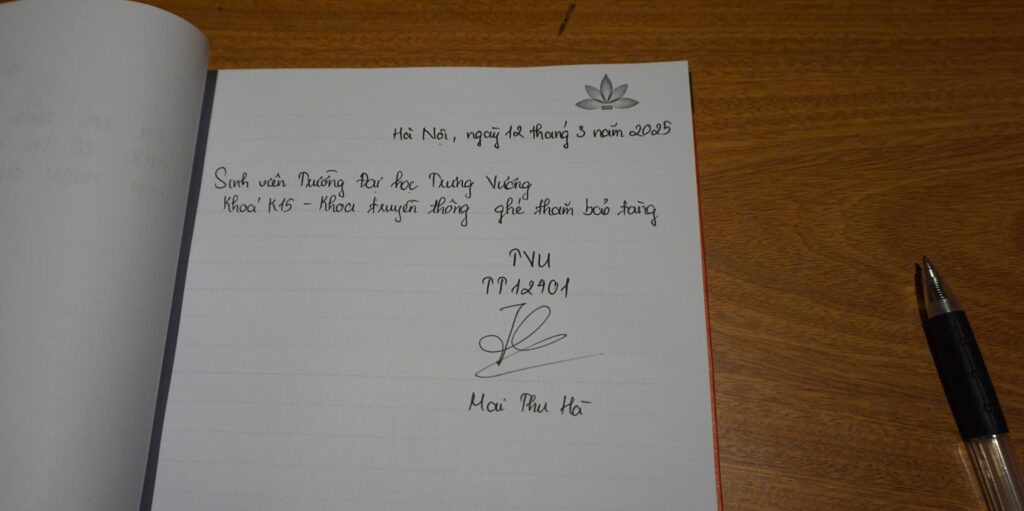 Hà Nội, ngày 12 tháng 3 năm 2025
Sinh viên Trường Đại học Trưng Vương
Khoá K15 - Khoa truyền thông ghé thăm bảo tàng
TVU
TT12401
Mai Thu Hà